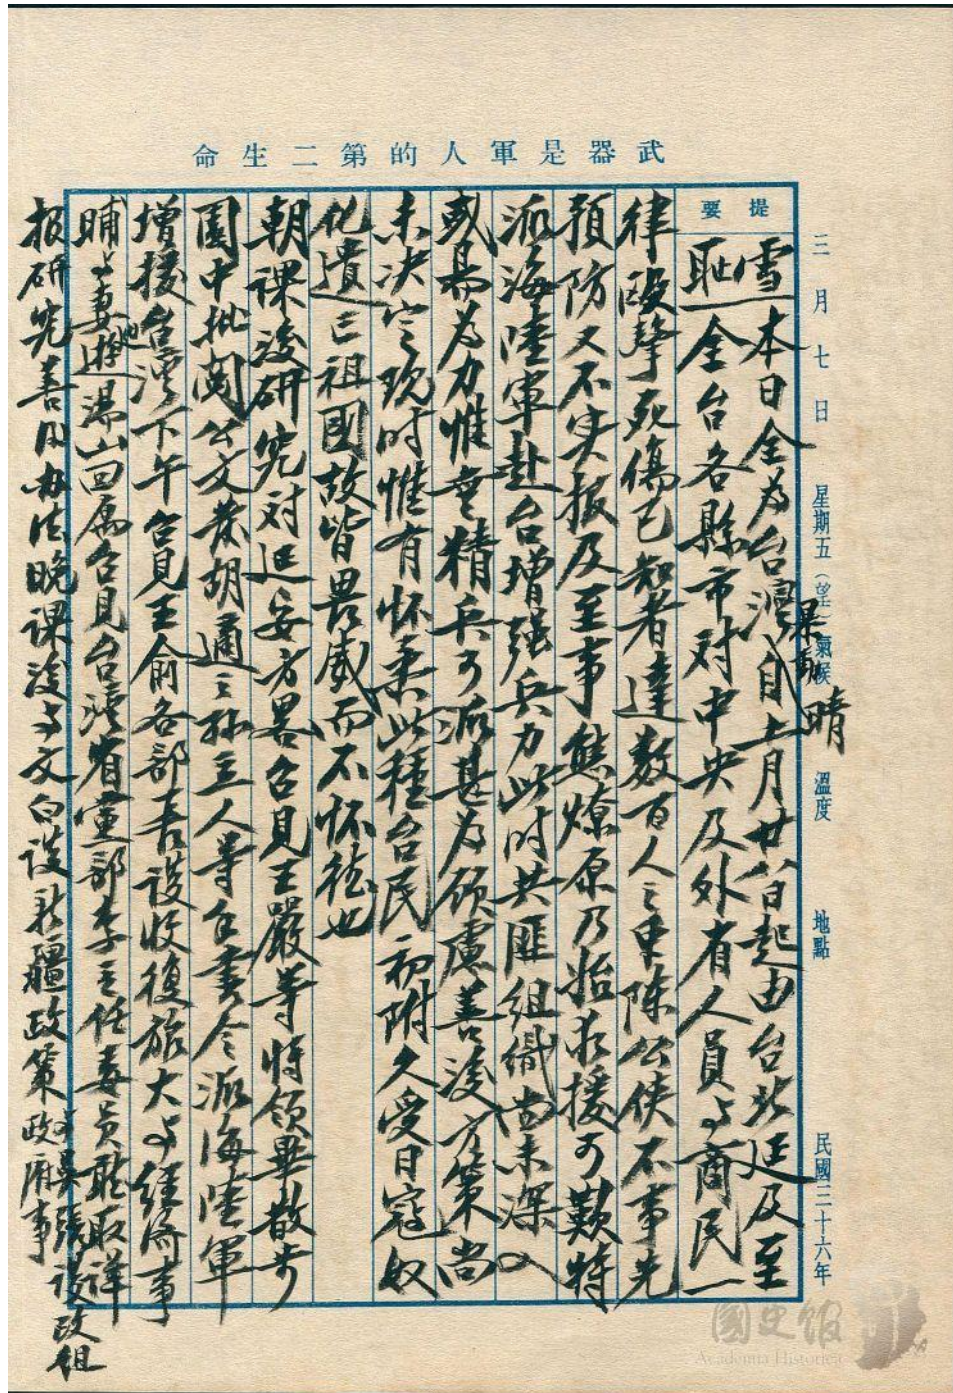 武器是軍人的第二生命
提要
三月七日 星期五（望） 氣候 晴 溫度 地點 民國三十六年
雪 本日全為台灣暴動自上月廿八日起由台北延及至
恥 全台各縣市對中央及外省人員與商民一
律毆擊死傷已知者達數百人之衆陳公俠不事先
預防又不实报及至事態燎原乃始求援可歎特
派海陸軍赴台增强兵力此時共匪組織尚未深入
或易為力惟無精兵可派甚為顧慮善後方策尚
未决定现时惟有怀柔此種台民初附久受日寇奴
化遺亡祖國故皆畏威而不怀德也
朝課後研究对延安方畧召見王嚴等特領畢散步
園中批閱公文叅胡適之孙立人等手書令派海陸軍
增援台湾下午召見王俞各部長談收復旅大與經濟事
晡與妻遊湯山回寓召見台灣省黨部李主任委員聽取詳
报研究善後办法晚課後與文白談新疆政策與吳張談政組
政府事
國史館
Academia Historica